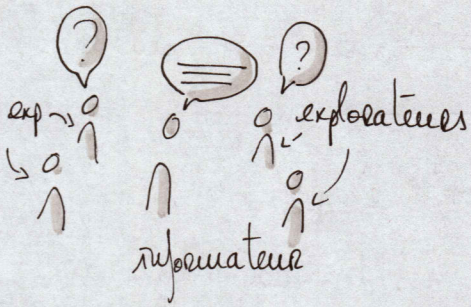 ?
?
exp
explorateurs
informateur